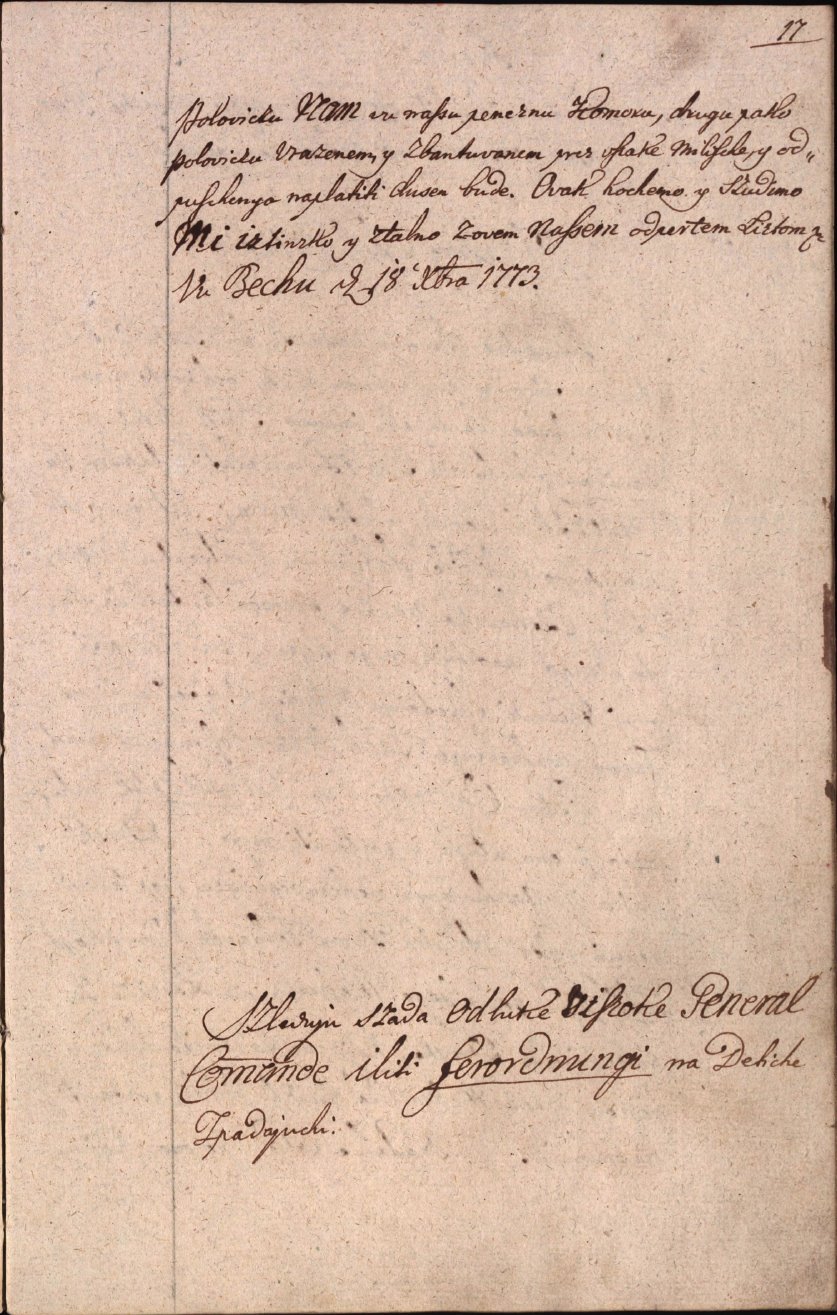 17
Poloviczu Nam vu nassu peneznu Komoru, drugu pako
poloviczu Vrazenem, y Zbantuvanem prez vsake Milosche, y od„
puschenya naplatiti dusen bude. Ovak hochemo y Szudimo
Mi isztinzko y ztalno Zovem Nassem odpertem Lisztom
Vu Bechu d 18 Xbra 1773.
Szleduju szada Odluke Viszoke General
Comande iliti ferordnungi na Detiche
Zpadajuchi.